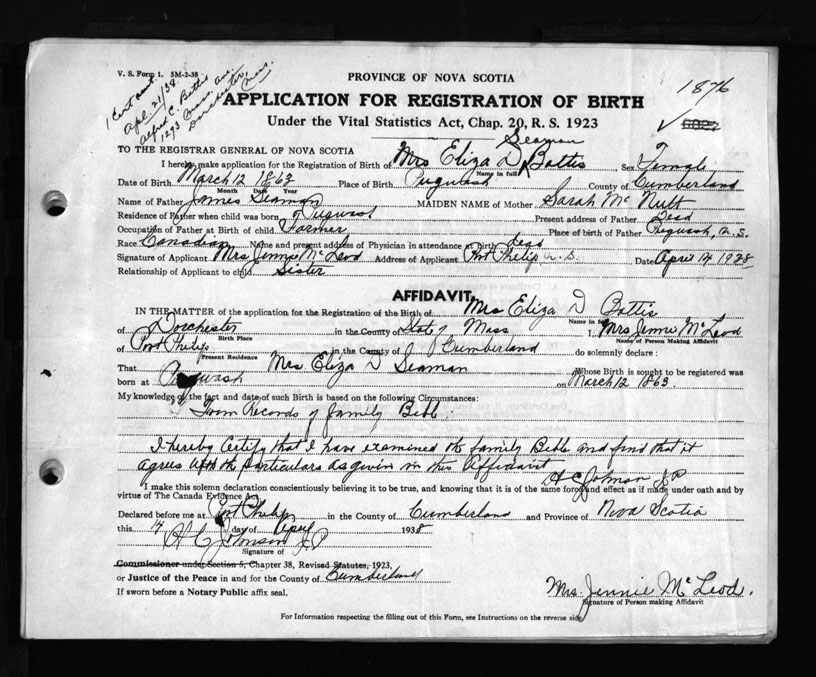 V. S. Form 1. 5M-2-38
1 Cert sent.
Apl. 21/38.
Alfred C. Battis
1293 Mass. ave.
Dorchester, Mass.
PROVINCE OF NOVA SCOTIA
1876
APPLICATION FOR REGISTRATION OF BIRTH
Under the Vital Statistics Act, Chap. 20, R. S. 1923
TO THE REGISTRAR GENERAL OF NOVA SCOTIA
Seaman
I hereby make application for the Registration of Birth of Mrs Eliza D Battis Sex Female
Name in full
Date of Birth March 12 1863 Place of Birth Pugwash County of Cumberland
Month Date Year
Name of Father James Seaman MAIDEN NAME of Mother Sarah Mc Nutt
Residence of Father when child was born Pugwash Present address of Father Dead
Occupation of Father at Birth of child Farmer Place of birth of Father Pugwash, n.s.
Race Canadian Name and present address of Physician in attendance at birth dead
Signature of Applicant Mrs Jennie McLeod Address of Applicant Port Philip n.s. Date April 14 1938
Relationship of Applicant to child Sister
AFFIDAVIT
IN THE MATTER of the application for the Registration of the Birth of Mrs Eliza D Battis
Name in full
of Dorchester in the County of State of Mass I, Mrs Jennie McLeod
Birth Place Name of Person Making Affidavit
of Port Philip in the County of Cumberland do solemnly declare:
Present Residence
That Mrs Eliza D Seaman Whose Birth is sought to be registered was
born at Pugwash on March 12 1863.
My knowledge of the fact and date of such Birth is based on the following Circumstances:
From Records of family Bible.
I hereby Certify that I have examined the family Bible and find that it
agrees with the particulars as given in this Affidavit
H C Johnson J P
"I make this solemn declaration conscientiously believing it to be true, and knowing that it is of the same force and effect as if made under oath and by
virtue of The Canada Evidence Act.
Declared before me at Port Philip in the County of Cumberland and Province of Nova Scotia
this 14 day of April 1938
H C Johnson J P
Signature of
Commissioner under Section 5, Chapter 38, Revised Statutes, 1923,
or Justice of the Peace in and for the County of Cumberland
If sworn before a Notary Public affix seal.
Mrs. Jennie McLeod.
Signature of Person making Affidavit
For Information respecting the filling out of this Form, see Instructions on the reverse side